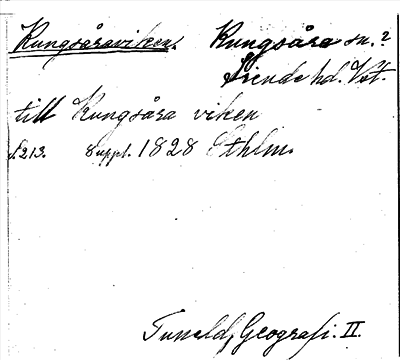 Kungsåraviken. Kungsåra sn.?
Siende hd. Vst.
till Kungsåra viken
s. 213. 8 uppl. 1828 Sthlm.
Tuneld, Geografi. II.